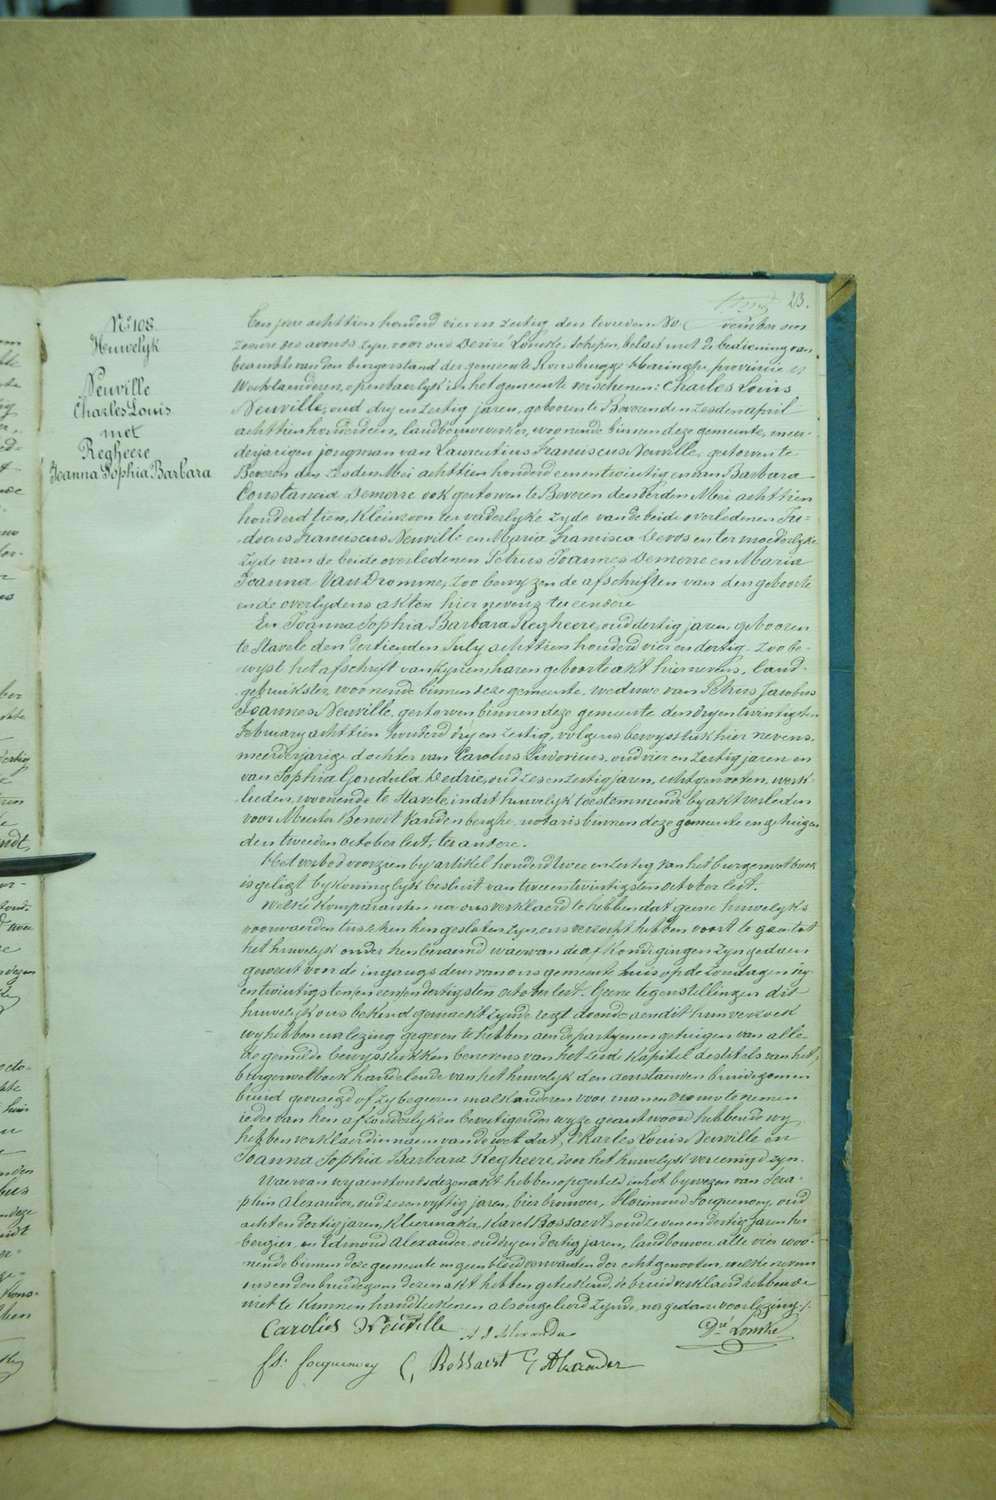 23.
N° 108.
Huwelyk
Neuville
Charles Louis
met
Regheere
Joanna Sophia Barbara
Ten jare achttien honderd vier en zestig den tweeden No vember om
zes ure des avonds zyn voor ons Desiré Loncke, schepen, belast met de bediening van
beambte van den burgerstand der gemeente Rousbrugge-Haringhe, provincie
Westvlaenderen, openbaerlyk in het gemeente verschenen: Charles Louis
Neuville, oud dry en zestig jaren, geboren te Beveren den zesden april
achttien honderd een, landbouwwerker, woonende binnen deze gemeente, meer-
derjarigen jongman van Laurentius Franciscus Neuville, gestorven te
Beveren den zesden Mei achttien honderd een en twintig en van Barbara
Constancia Demerre ook gestorven te Beveren den derden Mei achttien
honderd tien, kleinzoon ter vaderlyke zyde van de beide overledenen Ju-
docus Franciscus Neuville en Maria Francisca Devos en ter moederlyke
zyde van de beide overledenen Petrus Joannes Demerre en Maria
Joanna Van Dromme, zoo bewyzen de afschriften van den geboorte
en de overlydens akten hier nevens ten eendere
En Joanna Sophia Barbara Regheere, oud dertig jaren, gebooren
te Stavele den dertienden July achttien honderd vier en dertig, zoo be-
wyst het afschrift van haren geboorte akt hier nevens, land-
gebruikster, woonende binnen deze gemeente, weduwe van Petrus Jacobus
Joannes Neuville, gestorven binnen deze gemeente den dry en twintigsten
February achttien honderd dry en zestig, volgens bewysstuk hier nevens,
meerderjarige dochter van Carolus Ludovicus, oud vier en zestig jaren en
van Sophia Gondula Dedrie, oud zes en zestig jaren, echtgenooten, werk-
lieden, woonende te Stavele, in dit huwelyk toestemmende by akt verleden
voor Meester Benoit Vandenberghe, notaris binnen deze gemeente en getuigen
den tweeden october lest, ter andere.
Het verbod voorzien by artikel honderd twee en zestig van het burgerwetboek
is geligt by koninglyk besluit van twee en twintigsten october lest.
Welke komparanten na ons verklaerd te hebben dat geene huwelyks
voorwaerden tusschen hen gesloten zyn, ons verzocht hebben voort te gaen tot
het huwelyk onder hen beraemd waervan de afkondigingen zyn gedaen
geweest voor de ingangs deur van ons gemeente huis op de zondagen dry
en twintigsten en een en dertigsten october lest. Geene tegenstellingen dit
huwelyk ons bekend gemaekt zynde regt doende aen dit hun verzoek
wy hebben na lezing gegeven te hebben aen de partyen en getuigen van alle
de gemelde bewysstukken benevens van het zesde kapittel des titels van het
burgerwetboek handelende van het huwelyk den aenstaenden bruidegom en
bruid gevraegd of zy begeeren malkanderen voor man en vrouw te nemen
ieder van hen afzonderlyken bevestigender wyze geantwoord hebbende wy
hebben verklaerd in naem van de wet dat, Charles Louis Neuville en
Joanna Sophia Barbara Regheere, door het huwelyk vereenigd zyn.
Waervan wy aenstonds dezen akt hebben opgesteld in het bywezen van Sera-
phin Alexander, oud zeven en vyftig jaren, bierbrouwer, Florimond Focquenoey, oud
acht en dertig jaren, kleermaker, Karel Bossaert, oud zeven en dertig jaren her-
bergier, en Edmond Alexander, oud dry en dertig jaren, landbouwer alle vier woo-
nende binnen deze gemeente en geen bloedverwanten der echtgenooten, welke nevens
ons en den bruidegom dezen akt hebben geteekend, de bruid verklaerd hebbende
niet te kunnen handteekenen als ongeleerd zynde, na gedane voorlezing./.
Carolus Neuville
S. J. Alexander
Dré Loncke
fd. focquenoey
C, Bossaert
E Alexander